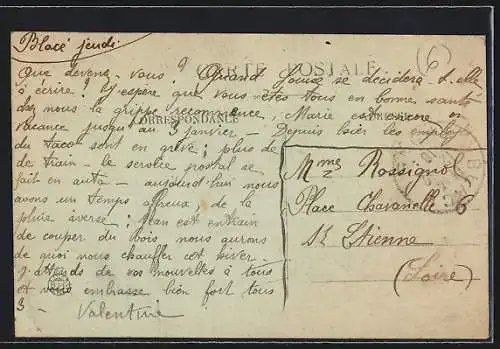 Blacé jeudi
6
CARTE POSTALE
Que devenez-vous ? Quand Louise se décidera-t-elle
à écrire ? J'espère que vous êtes tous en bonne santé
chez nous la grippe recommence, Marie est encore en
CORRESPONDANCE
vacance jusqu'au 3 janvier - Depuis hier les employés
du taco sont en grève ; plus de
de train - le service postal se
fait en auto - aujourd'hui nous
avons un temps affreux de la
pluie averse ; Jean est entrain
de couper du bois, nous aurons
de quoi nous chauffer cet hiver
J'attends de vos nouvelles à tous
et vous embrasse bien fort tous
3 - Valentine
Mme Rossignol
Place Chavanelle 6
St Etienne
(Loire)